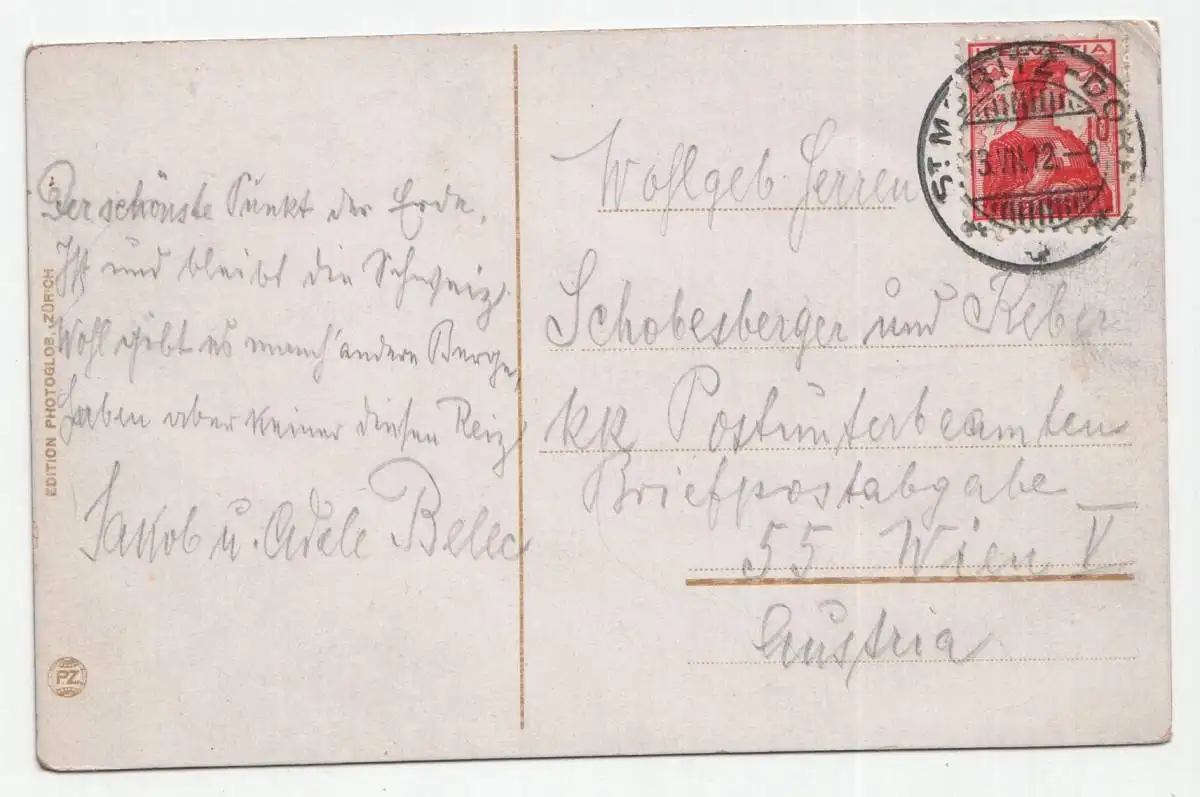 Der schönste Punkt der Erde,
Ist und bleibt die Schweiz.
Wohl gibt es manch' andere Berge,
Haben aber keiner diesen Reiz
Jakob u. Adele Belec
EDITION PHOTOGLOB, ZÜRICH
PZ
HELVETIA
10
ST MORITZ-DORF
13.VII.12.-8
Wohlgeb. Herren
Schobesberger und Keber
kk Postunterbeamten
Briefpostabgabe
55 Wien V
Austria